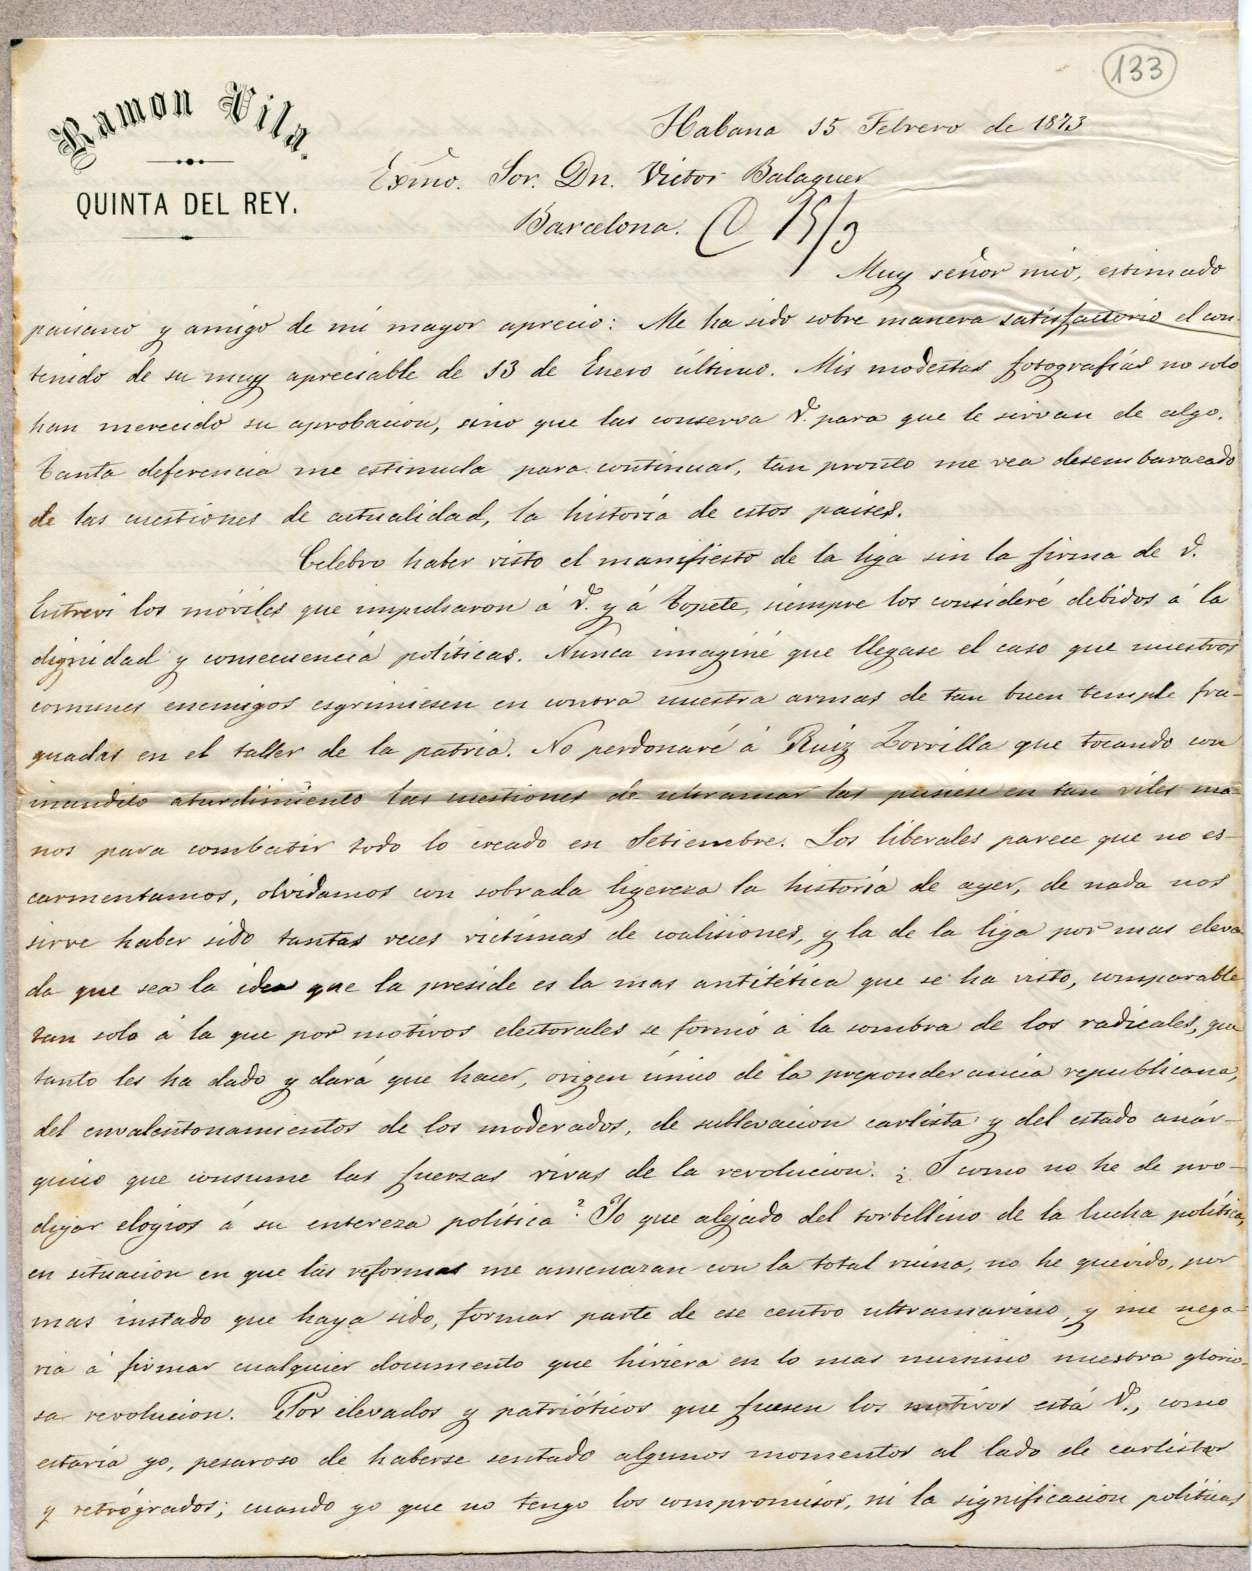 133
Ramon Vila.
QUINTA DEL REY.
Habana 15 Febrero de 1873
Exmo. Sor. Dn. Victor Balaguer
Barcelona. C 15/3
Muy señor mio, estimado
paisano y amigo de mi mayor aprecio: Me ha sido sobre manera satisfactorio el con-
tenido de su muy apreciable de 13 de Enero último. Mis modestas fotografías no solo
han merecido su aprobacion, sino que las conserva V. para que le sirvan de algo.
Tanta deferencia me estimula para continuar, tan pronto me vea desembarazado
de las cuestiones de actualidad, la história de estos paises.
Celebro haber visto el manifiesto de la liga sin la firma de V.
Entreví los móviles que impulsaron á V. y á Topete, siempre los consideré debidos á la
dignidad y consecuencia políticas. Nunca imaginé que llegase el caso que nuestros
comunes enemigos esgrimiesen en contra nuestra armas de tan buen temple fra-
guadas en el taller de la patria. No perdonaré á Ruiz Zorrilla que tocando con
inaudito aturdimiento las cuestiones de ultramar las pusiese en tan viles ma-
nos para combatir todo lo creado en Setiembre. Los liberales parece que no es-
carmentamos, olvidamos con sobrada ligereza la história de ayer, de nada nos
sirve haber sido tantas veces victimas de coalisiones, y la de la liga por mas eleva
da que sea la idea que la preside es la mas antitética que se ha visto, comparable
tan solo á la que por motivos electorales se formó á la sombra de los radicales, que
tanto les ha dado y dará que hacer, origen único de la preponderancia republicana,
del envalentonamientos de los moderados, de sublevacion carlista y del estado anár-
quico que consume las fuerzas vivas de la revolucion. ¿Y como no he de pro-
digar elogios á su entereza política? Yo que alejado del torbellino de la lucha política,
en situacion en que las reformas me amenazan con la total ruina, no he querido, por
mas instado que haya sido, formar parte de ese centro ultramarino, y me nega-
ria á firmar cualquier documento que hiriera en lo mas minimo nuestra glorio-
sa revolucion. Por elevados y patrióticos que fuesen los motivos está V., como
estaría yo, pesaroso de haberse sentado algunos momentos al lado de carlistas
y retrógrados; cuando yo que no tengo los compromisos, ni la significacion políticas